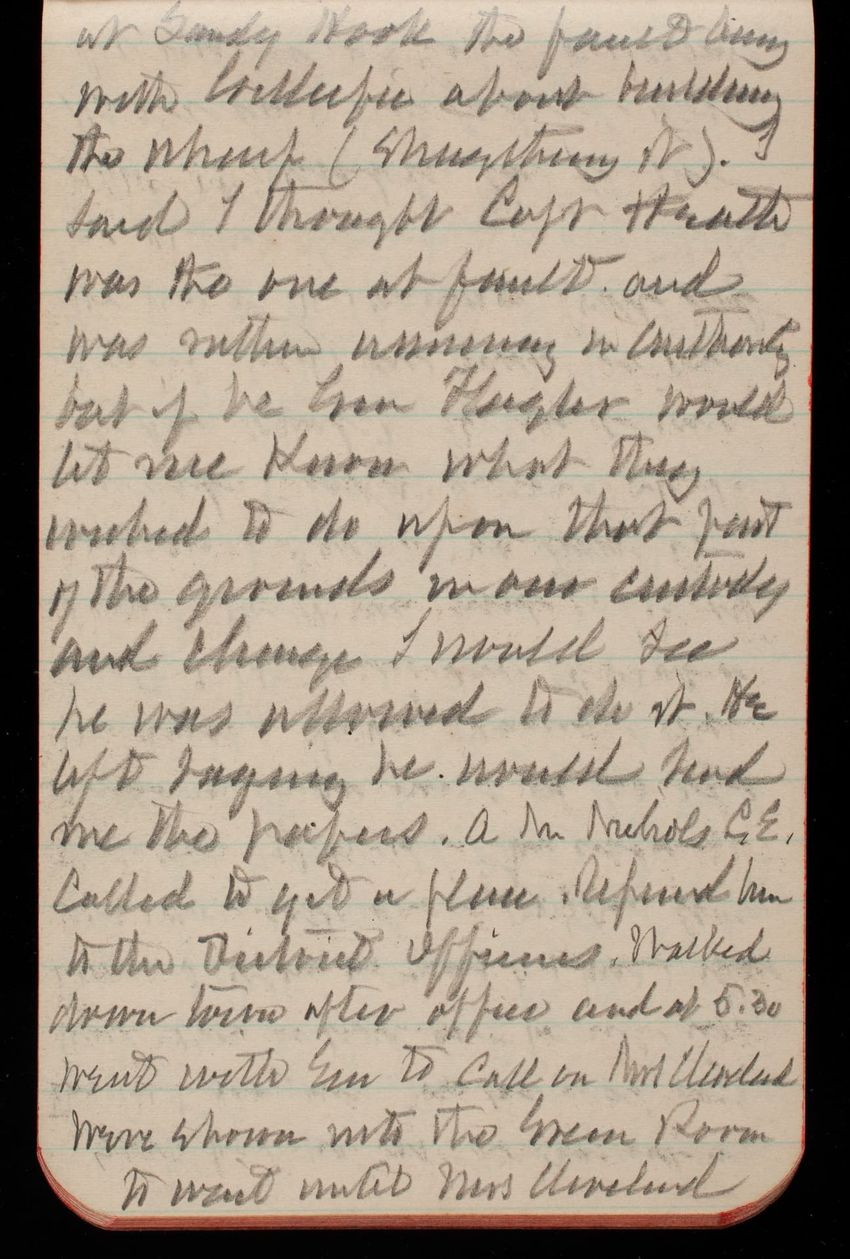 at Sandy Hook the fault being
with Gillespie about building
the wharf (Strengthening it). I
said I thought Capt Heath
was the one at fault. and
was rather in authority
but if he Gen Flagler would
let me Know what they
wished to do upon that part
of the grounds in our custody
and charge I would see
he was allowed to do it. He
left saying he would send
me the papers. A Mr Nichols C,E,
Called to get a place. Refered him
to the District Officers. Walked
down town after office and at 5.30
went with Em to Call on Mrs Cleveland
Were shown into the Green Room
to wait until Mrs Cleveland